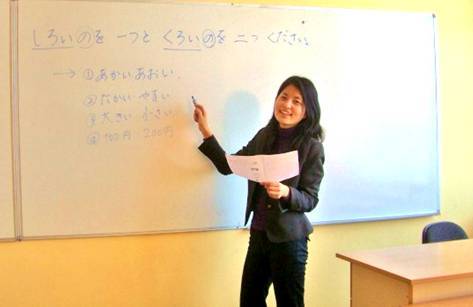 しろいのを 一つと くろいのを 二つ ください。
→ ①あかい あおい
②たかい やすい
③大きい 小さい
④100円 200円